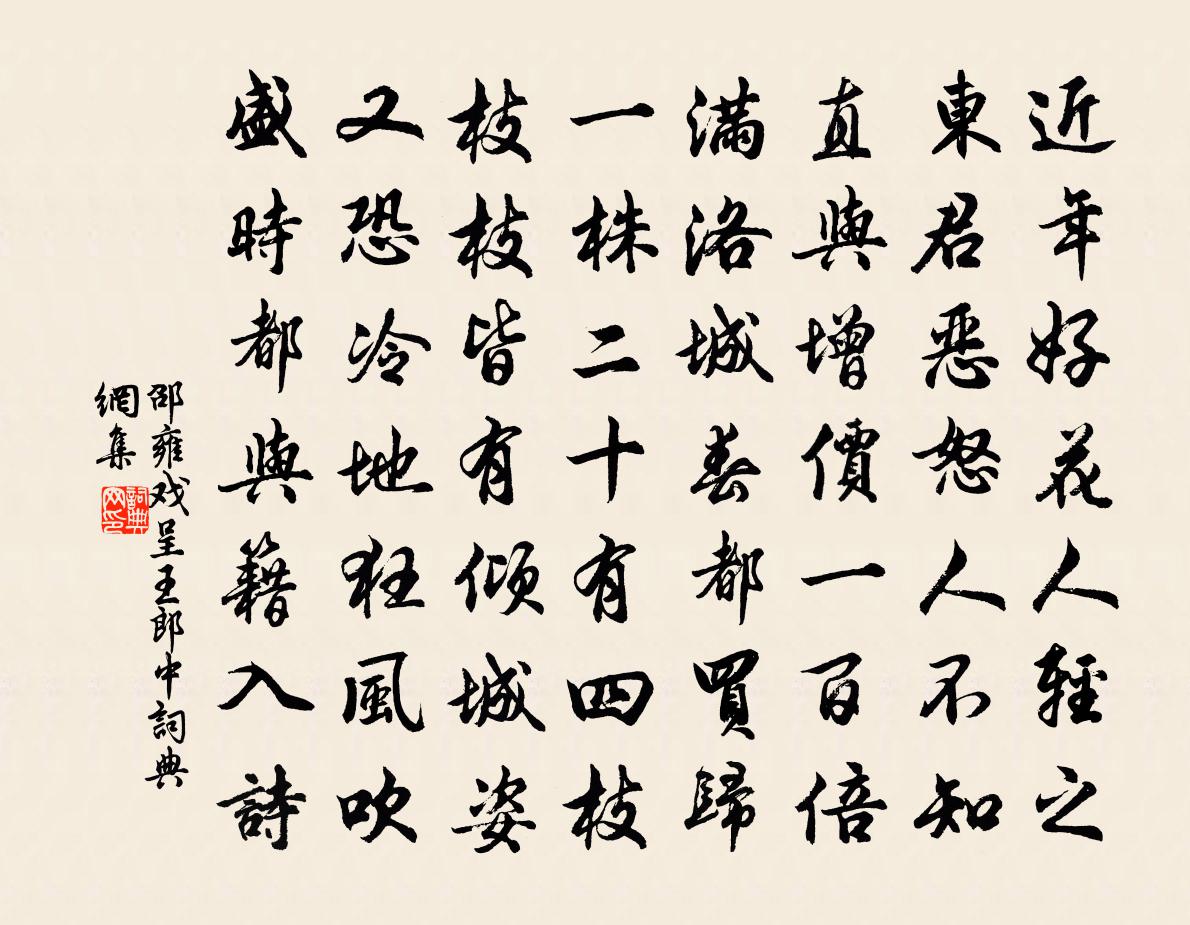 近年好花人輕之
東君惡怒人不知
直與增價一百倍
滿洛城春都買歸
一株二十有四枝
枝枝皆有傾城姿
又恐冷地狂風吹
盛時都與籍入詩
邵雍戏呈王郎中詞典
網集
詞典
网印